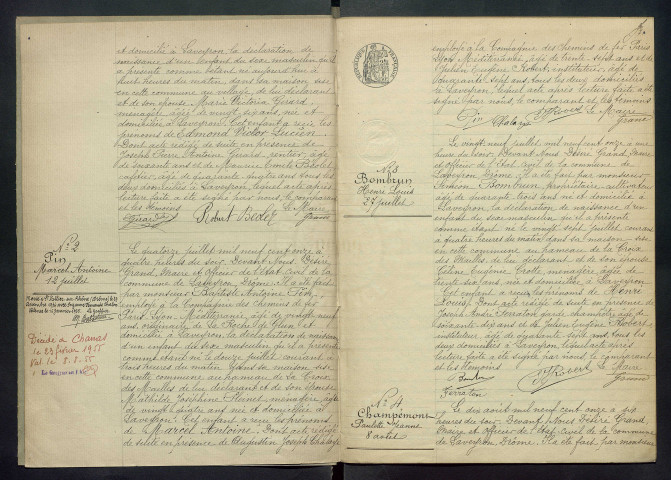 et domicilié à Laveyron la déclaration de
naissance d'un enfant du sexe masculin qu'il
a présenté comme étant né aujourd'hui à
huit heures du matin dans sa maison sise
en cette commune au village, de lui déclarant
et de son épouse Marie Victoria Girard
ménagère âgée de vingt six ans née et
domiciliée à Laveyron. Cet enfant a reçu les
prénoms de Edmond Victor Lucien
Dont acte rédigé de suite en présence de
Joseph Pierre Girard rentier, âgé
de soixante ans et de Maurice
cafetier, âgé de cinquante quatre ans tous les
deux domiciliés à Laveyron, lequel acte après
lecture faite a été signé par nous, le comparant
et les témoins Le Maire
Girard Robert Bedet Grand
N° 2
Pin
Marcel Antoine
12 juillet
Décédé à Chanas
le 23 février 1955
Le quatorze juillet mil neuf cent onze à
quatre heures du soir. Devant Nous Désiré
Grand, Maire et Officier de l'Etat Civil de la
commune de Laveyron, Drôme, Il a été fait
par monsieur Baptiste Antoine Pin
employé à la Compagnie des chemins de fer
Paris Lyon Méditerranée, âgé de vingt neuf
ans, originaire de La Roche de Glun et
domicilié à Laveyron, la déclaration de naissance
d'un enfant du sexe masculin, qu'il a présenté
comme étant né le douze juillet courant à
trois heures du matin dans sa maison sise
en cette commune au hameau de la Croix
des Mailles de lui déclarant et de son épouse
Mathilde Joséphine ménagère, âgée
de vingt quatre ans née et domiciliée à
Laveyron. Cet enfant a reçu les prénoms
de Marcel Antoine. Dont acte rédigé
de suite en présence de Augustin Joseph Chalaye
employé à la Compagnie des chemins de fer Paris
Lyon Méditerranée, âgé de trente sept ans et de
Julien Eugène Robert, instituteur, âgé de
quarante sept ans, tous les deux domiciliés
à Laveyron, lequel acte après lecture faite a été
signé par nous, le comparant et les témoins
Pin Chalaye J. Robert Le Maire
Grand
N° 3
Bombrun
Henri Louis
27 juillet
Le vingt neuf juillet mil neuf cent onze à une
heure du soir. Devant Nous Désiré Grand, Maire
et Officier de l'Etat Civil de la commune de
Laveyron, Drôme, Il a été fait par monsieur
Siméon Bombrun, propriétaire cultivateur
âgé de quarante trois ans né et domicilié à
Laveyron, la déclaration de naissance d'un
enfant du sexe masculin qu'il a présenté
comme étant né le vingt sept juillet courant
à quatre heures du matin dans sa maison sise
en cette commune au hameau de la Croix
des Mailles de lui déclarant et de son épouse
Céline Eugénie Crotte ménagère âgée de
trente six ans, née et domiciliée à Laveyron
Cet enfant a reçu les prénoms de Henri
Louis. Dont acte rédigé de suite en présence de
Joseph André Ferraton garde champêtre âgé de
soixante dix ans et de Julien Eugène Robert
instituteur, âgé de quarante sept ans, tous les
deux domiciliés à Laveyron, lequel acte après
lecture faite a été signé par nous, le comparant
et les témoins Le Maire
Bombrun J. Robert Grand
Ferraton
N° 4
Champémont
Paulette Jeanne
8 août
Le dix août mil neuf cent onze à six
heures du soir. Devant Nous Désiré Grand
Maire et Officier de l'Etat Civil de la commune
de Laveyron, Drôme, Il a été fait par monsieur